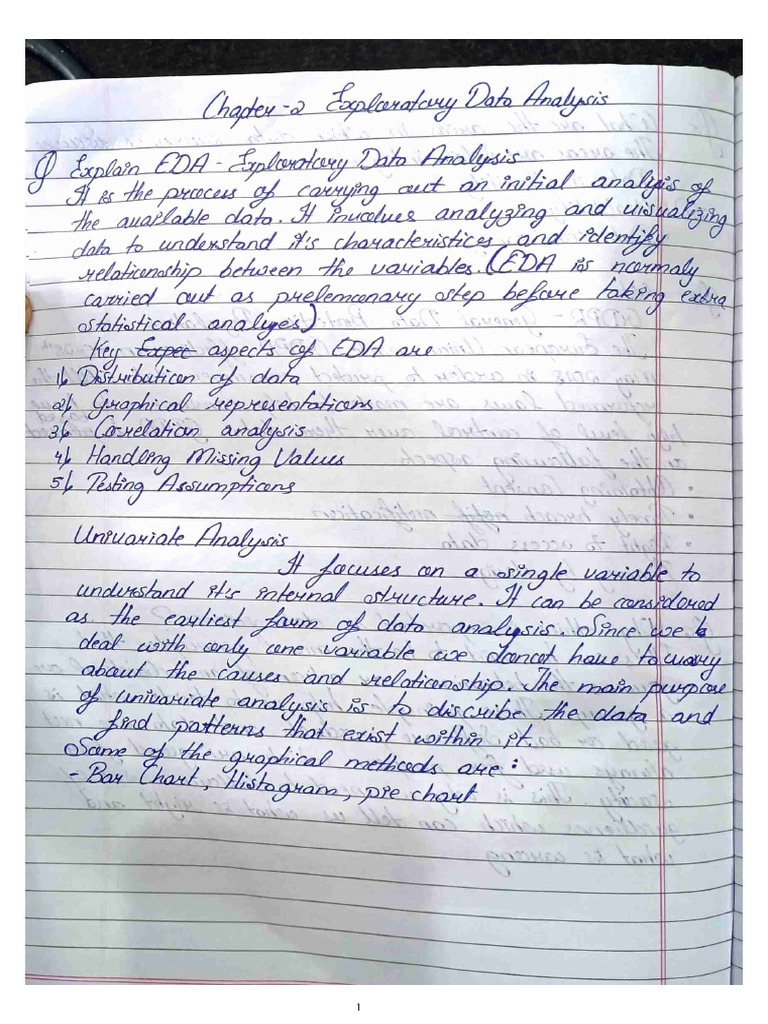 Chapter-2 Exploratory Data Analysis
Q Explain EDA - Exploratory Data Analysis
It is the process of carrying out an initial analysis of
the available data. It involves analyzing and visualizing
data to understand it's characteristices, and identify
relationship between the variables. (EDA is normaly
carried out as prelemenary step before taking extra
statistical analyes)
Key Expec aspects of EDA are
1) Distribution of data
2) Graphical representations
3) Co-relation analysis
4) Handling Missing Values
5) Testing Assumptions
Univariate Analysis
It focuses on a single variable to
understand it's internal structure. It can be considered
as the earliest form of data analysis. Since we
deal with only one variable we donot have to worry
about the causes and relationship. The main purpose
of univariate analysis is to discribe the data and
find patterns that exist within it.
Some of the graphical methods are:
- Bar Chart, Histogram, pie chart
1